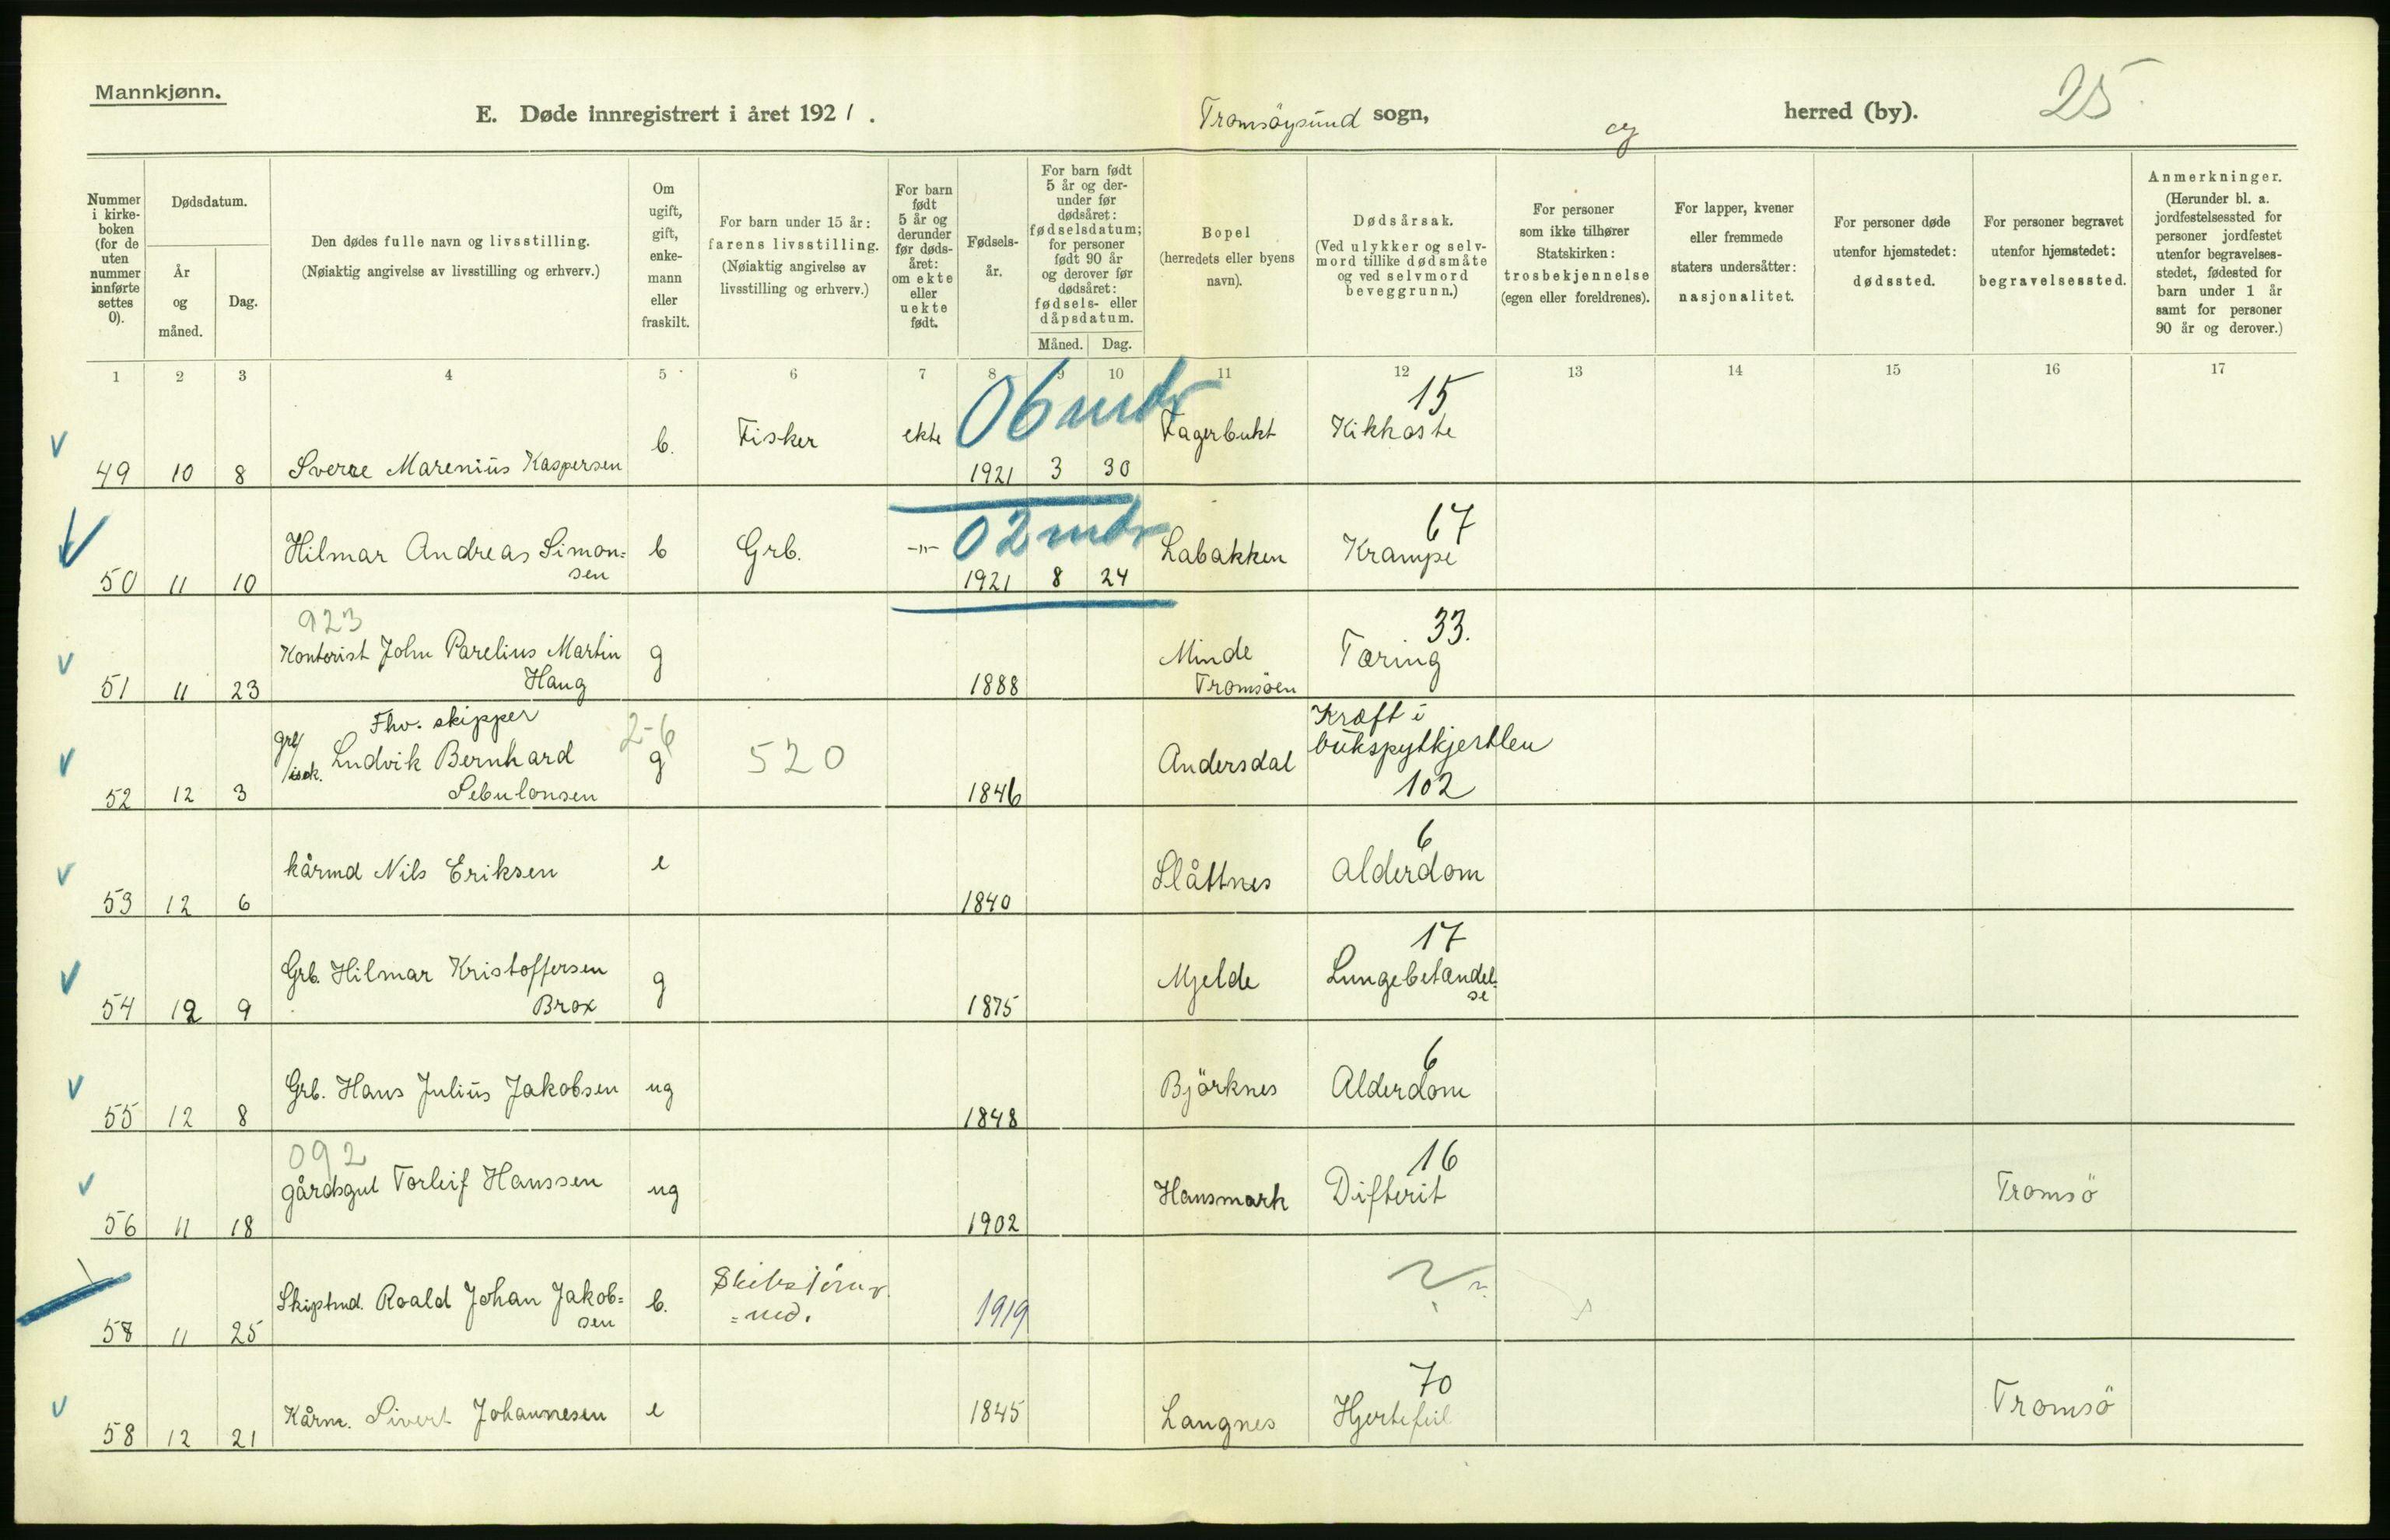 Mannkjønn.
E. Døde innregistrert i året 1921.
Tromsöysund sogn,
og
herred (by).
25
Nummer i kirkeboken (for de uten nummer innførte settes 0).
Dødsdatum.
År og måned.
Dag.
Den dødes fulle navn og livsstilling.
(Nøiaktig angivelse av livsstilling og erhverv.)
Om ugift, gift, enkemann eller fraskilt.
For barn under 15 år: farens livsstilling.
(Nøiaktig angivelse av livsstilling og erhverv.)
For barn født 5 år og derunder før dødsåret: om ekte eller uekte født.
Fødselsår.
For barn født 5 år og derunder før dødsåret: fødselsdatum; for personer født 90 år og derover før dødsåret: fødsels- eller dåpsdatum.
Måned. Dag.
Bopel
(herredets eller byens navn).
Dødsårsak.
(Ved ulykker og selvmord tillike dødsmåte og ved selvmord beveggrunn.)
For personer som ikke tilhører Statskirken: trosbekjennelse (egen eller foreldrenes).
For lapper, kvener eller fremmede staters undersåtter: nasjonalitet.
For personer døde utenfor hjemstedet: dødssted.
For personer begravet utenfor hjemstedet: begravelsessted.
Anmerkninger.
(Herunder bl. a. jordfestelsessted for personer jordfestet utenfor begravelsesstedet, fødested for barn under 1 år samt for personer 90 år og derover.)
1 2 3 4 5 6 7 8 9 10 11 12 13 14 15 16 17
06 mdr 15
49 10 8 Sverre Marenius Kaspersen b. Fisker ekte 1921 3 30 Fagerbukt Kikhoste
02 mdr 67
50 11 10 Hilmar Andreas Simon=
sen b Grb. -"- 1921 8 24 Labakken Krampe
923 33.
51 11 23 Kontorist John Parelius Martin
Haug g 1888 Minde
Tromsöen Tæring
Fhv. skipper 2-6 Kræft i
52 12 3 Ludvik Bernhard
Sebulonsen g 520 1846 Andersdal bukspytkjertlen
102
6
53 12 6 kårmd Nils Eriksen e 1840 Slåttnes Alderdom
17
54 12 9 Grb. Hilmar Kristoffersen
Brox g 1875 Mjelde Lungebetændel=
se
6
55 12 8 Grb. Hans Julius Jakobsen ug 1848 Björknes Alderdom
092 16
56 11 18 gårdsgut Torleif Hanssen ug 1902 Hansmark Difterit Tromsö
58 11 25 Skiptmd. Roald Johan Jakob=
sen b. 1919 ?
70
58 12 21 Kårm. Sivert Johannesen e 1845 Langnes Hjertefeil Tromsö